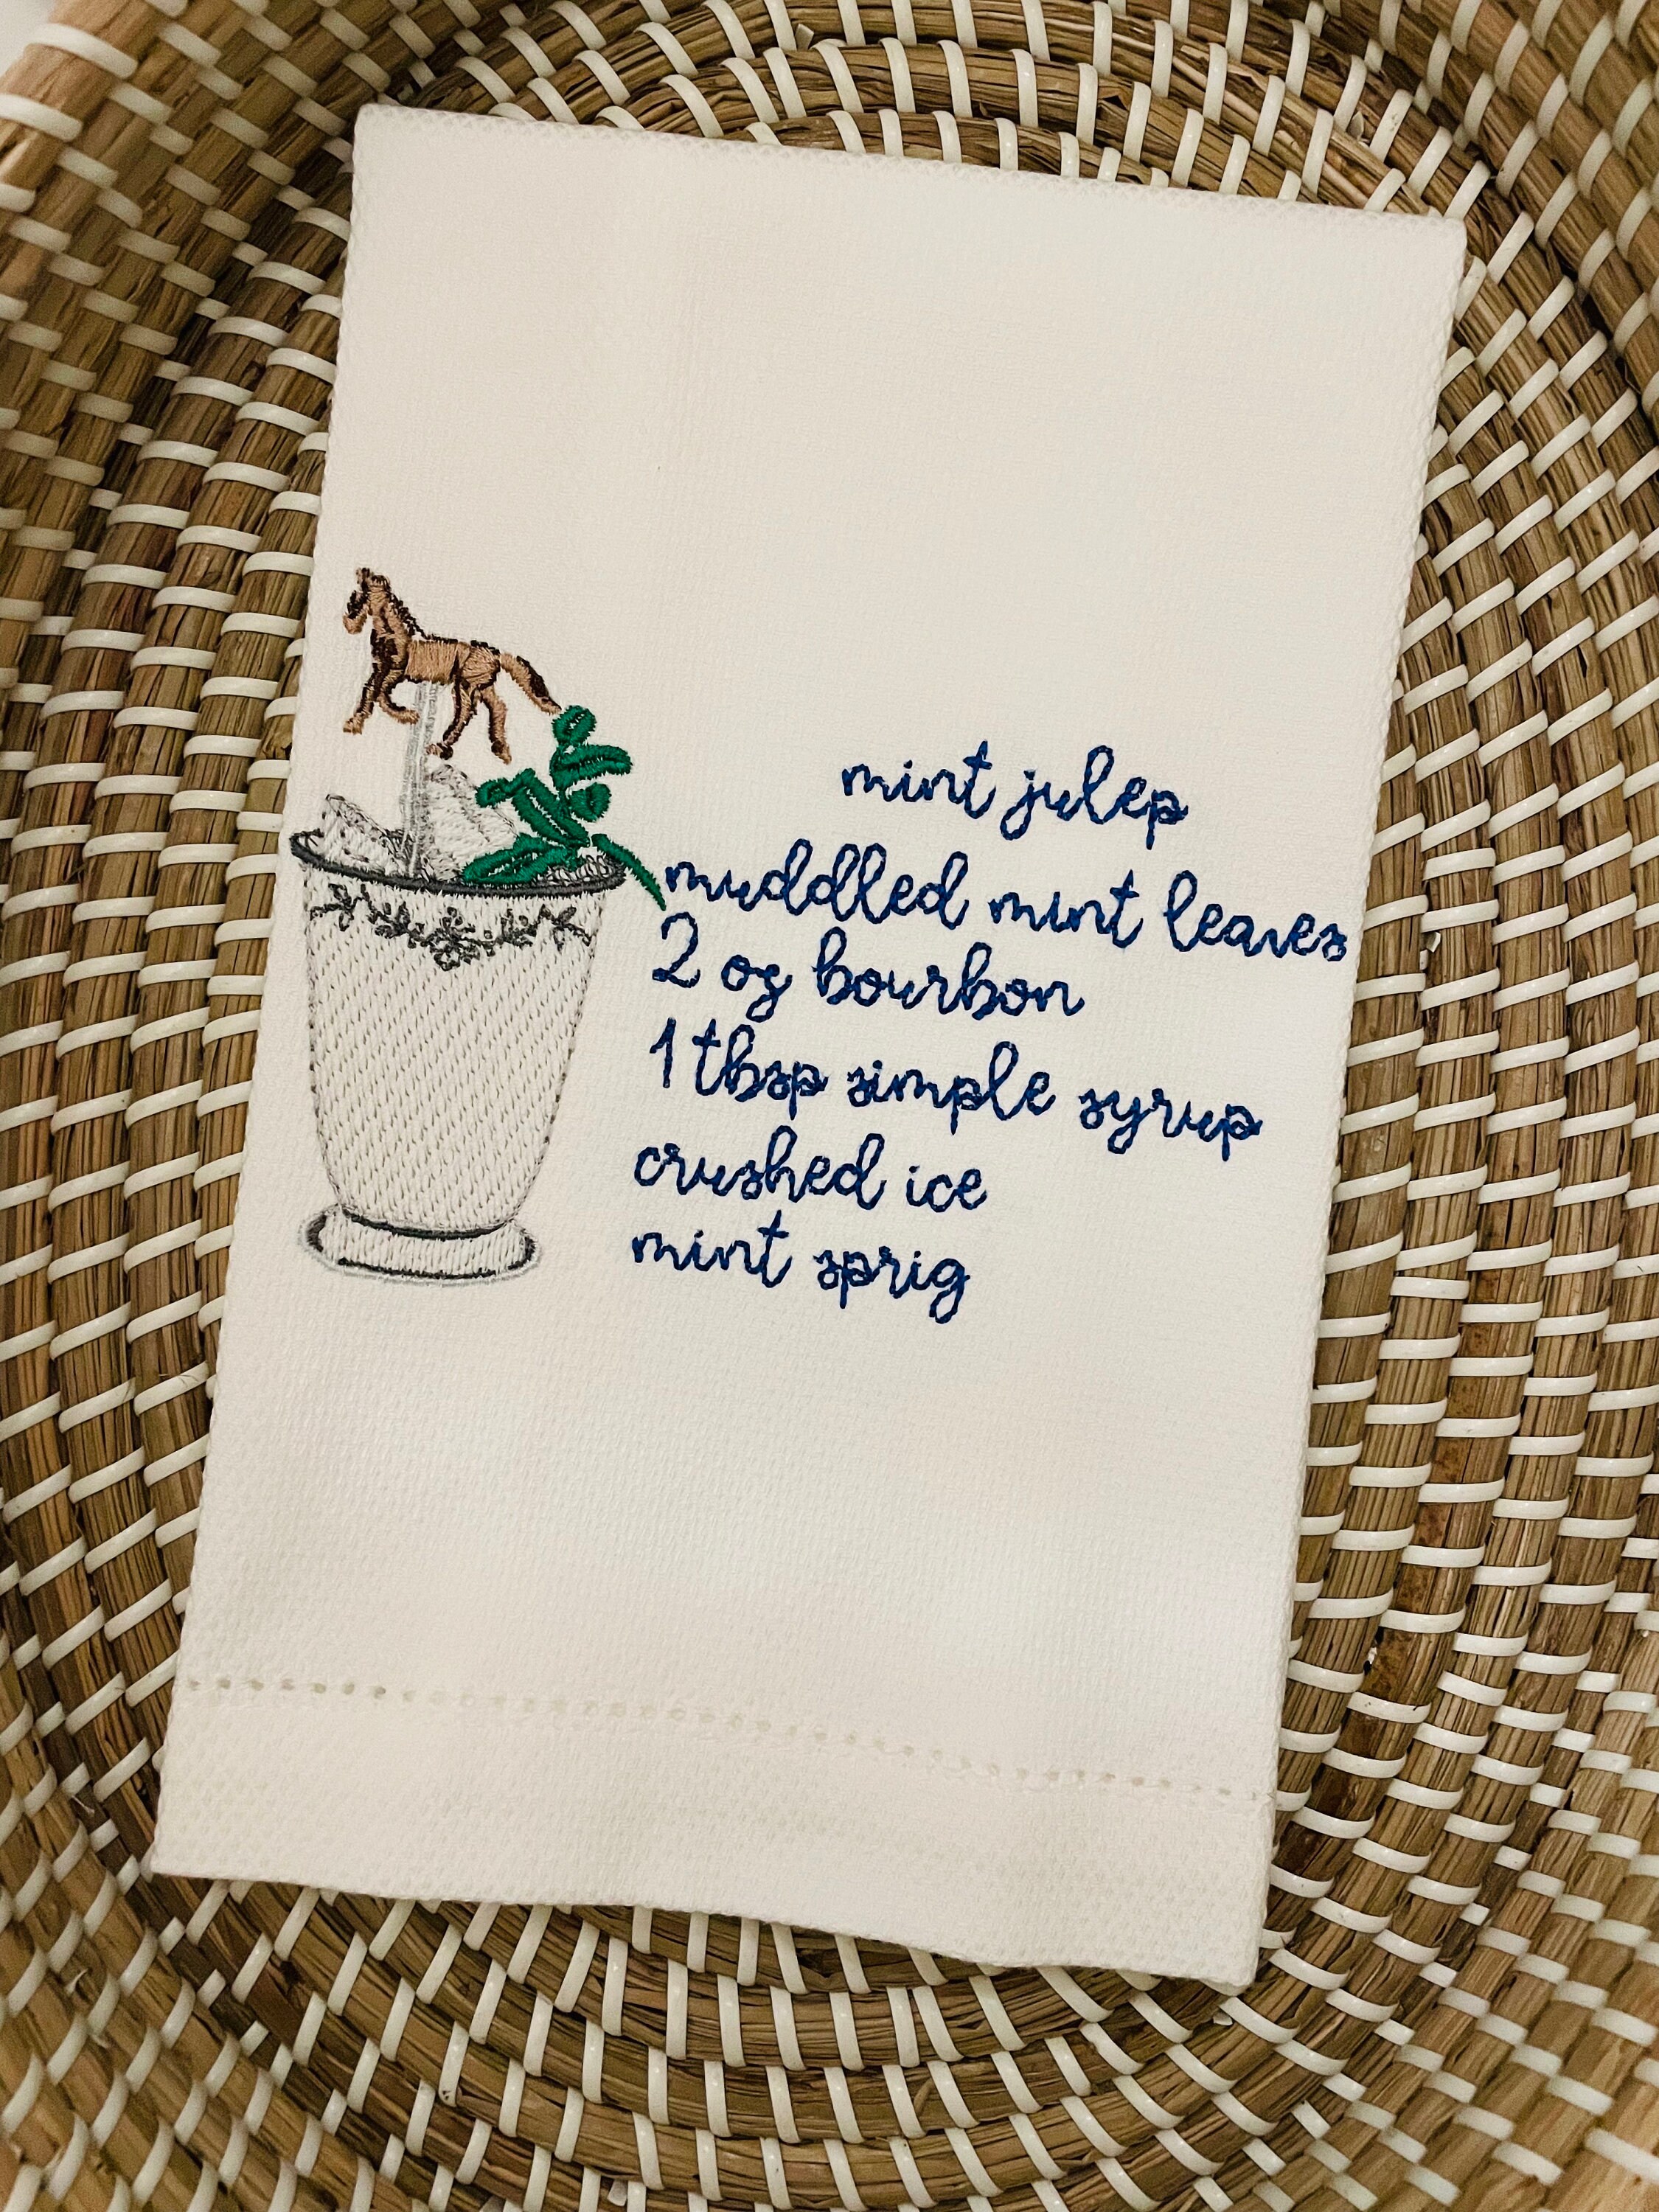 mint julep
muddled mint leaves
2 oz bourbon
1 tbsp simple syrup
crushed ice
mint sprig